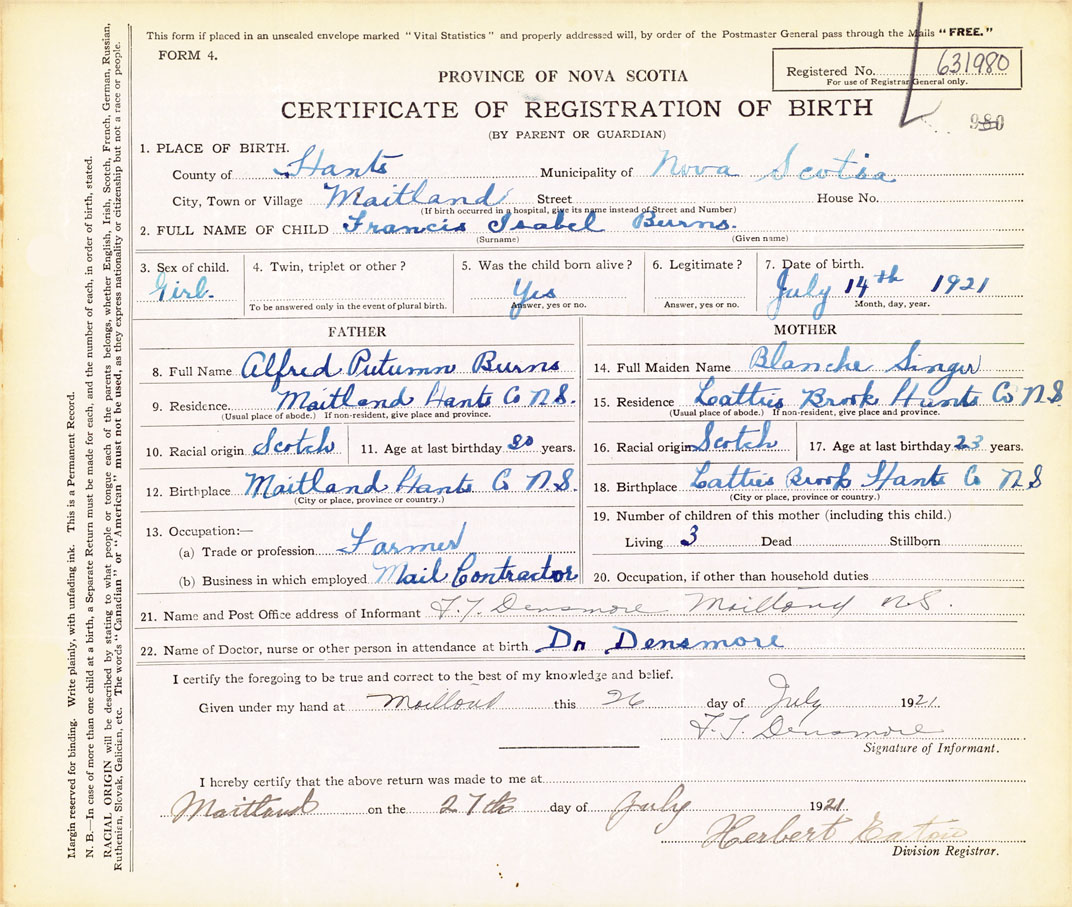 This form if placed in an unsealed envelope marked "Vital Statistics" and properly addressed will, by order of the Postmaster General pass through the Mails "FREE."
FORM 4.
PROVINCE OF NOVA SCOTIA
Registered No. 631980
For use of Registrar General only.
CERTIFICATE OF REGISTRATION OF BIRTH
980
(BY PARENT OR GUARDIAN)
1. PLACE OF BIRTH.
County of Hants Municipality of Nova Scotia
City, Town or Village Maitland Street House No.
(If birth occurred in a hospital, give its name instead of Street and Number)
2. FULL NAME OF CHILD Francis Isabel Burns.
(Surname) (Given name)
3. Sex of child. 4. Twin, triplet or other? 5. Was the child born alive? 6. Legitimate? 7. Date of birth.
Girl. Yes July 14th 1921
To be answered only in the event of plural birth. Answer, yes or no. Answer, yes or no. Month, day, year.
FATHER
8. Full Name Alfred Putumn Burns
9. Residence. Maitland Hants Co N.S.
(Usual place of abode.) If non-resident, give place and province.
10. Racial origin Scotch 11. Age at last birthday 30 years.
12. Birthplace Maitland Hants Co N.S.
(City or place, province or country.)
13. Occupation:—
(a) Trade or profession Farmer
(b) Business in which employed Mail Contractor
MOTHER
14. Full Maiden Name Blanche Singer
15. Residence Latties Brook Hants Co N.S
(Usual place of abode.) If non-resident, give place and province.
16. Racial origin Scotch 17. Age at last birthday 23 years.
18. Birthplace Latties Brook Hants Co N S
(City or place, province or country.)
19. Number of children of this mother (including this child.)
Living 3 Dead Stillborn
20. Occupation, if other than household duties
21. Name and Post Office address of Informant F. T. Densmore Maitland N.S.
22. Name of Doctor, nurse or other person in attendance at birth Dr Densmore
I certify the foregoing to be true and correct to the best of my knowledge and belief.
Given under my hand at Maitland this 26 day of July 1921.
F. T. Densmore
Signature of Informant.
I hereby certify that the above return was made to me at
Maitland on the 27th day of July 1921
Herbert Eaton
Division Registrar.
Margin reserved for binding. Write plainly, with unfading ink. This is a Permanent Record.
N. B.—In case of more than one child at a birth, a Separate Return must be made for each, and the number of each, in order of birth, stated.
RACIAL ORIGIN will be described by stating to what people or tongue each of the parents belongs, whether English, Irish, Scotch, French, German, Russian,
Ruthenien, Slovak, Galician, etc. The words "Canadian" or "American" must not be used, as they express nationality or citizenship but not a race or people.